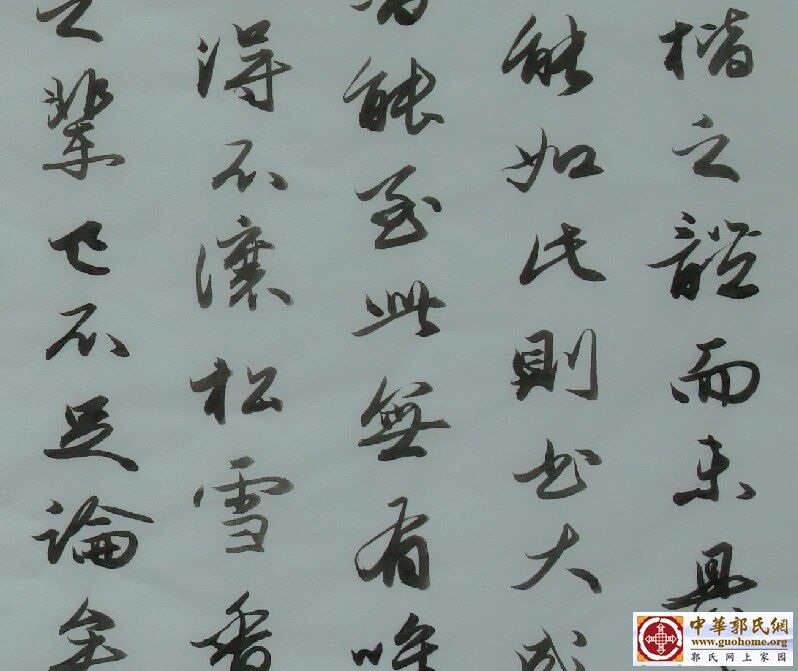 楷之體而未具
能如此則書大成
者能至此無有唯
得不讓松雪香
之輩已不足論矣
中華郭氏網
www.guohome.org
郭氏网上家园